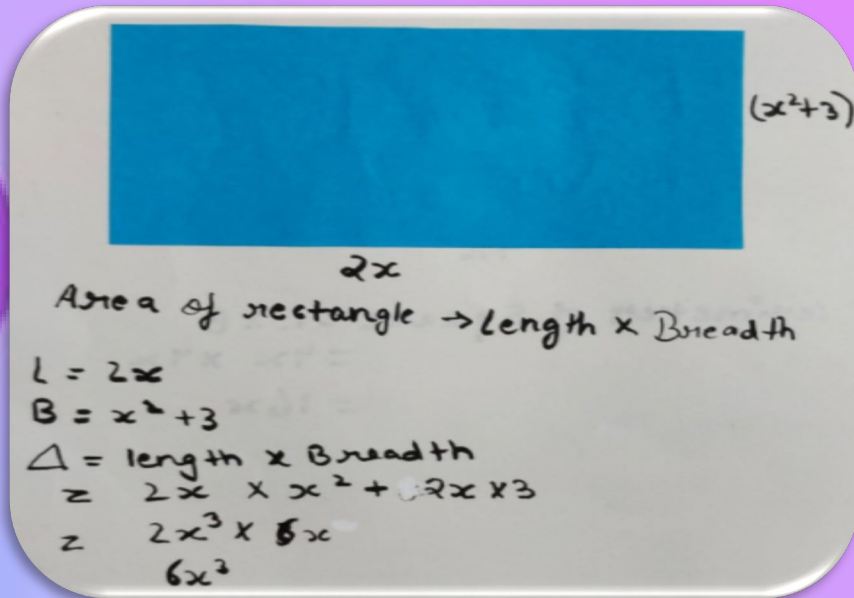 (x²+3)
2x
Area of rectangle → Length × Breadth
L = 2x
B = x² + 3
△ = length × Breadth
= 2x × x² + 2x × 3
= 2x³ × 6x
6x³